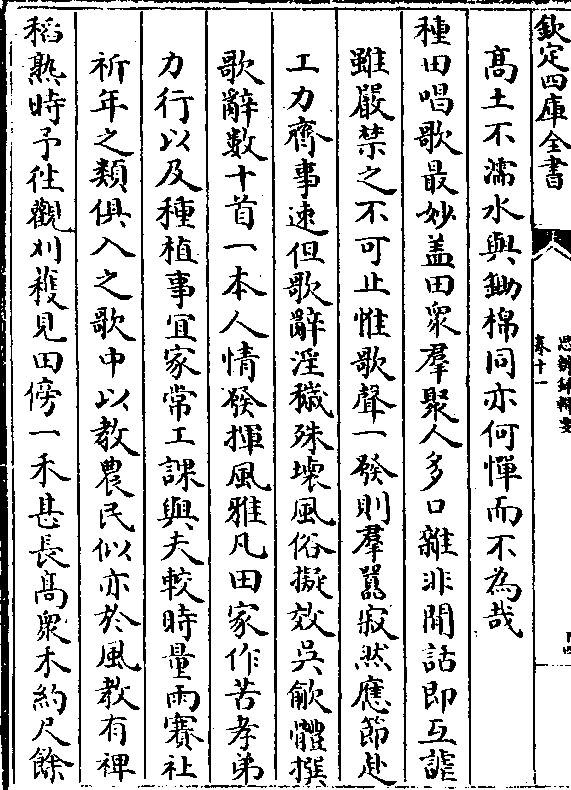 欽定四庫全書
思辨録輯要
卷十一
十四
髙土不濡水與鋤棉同亦何憚而不為哉
種田唱歌最妙盖田衆羣聚人多口雜非閒話即互謔
雖嚴禁之不可止惟歌聲一發則羣囂寂然應節赴
工力齊事速但歌辭淫穢殊壊風俗擬效吳歈體撰
歌辭數十首一本人情發揮風雅凡田家作苦孝弟
力行以及種植事宜家常工課與夫較時量雨賽社
祈年之類俱入之歌中以教農民似亦於風教有裨
稻熟時予往觀刈穫見田傍一禾甚長髙衆禾約尺餘